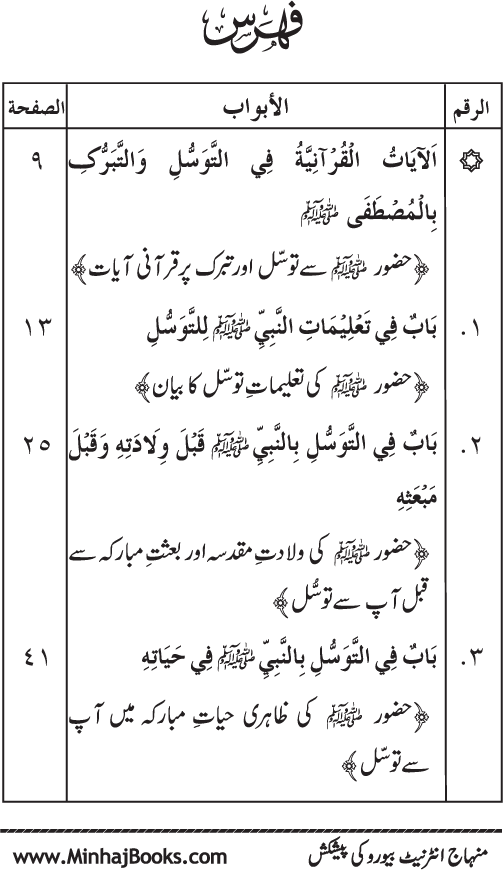 فہرس
الرقم الأبواب الصفحة
اَلآيَاتُ الْقُرْآنِيَّةُ فِي التَّوَسُّلِ وَالتَّبَرُّکِ ٩
بِالْمُصْطَفَی ﷺ
﴿حضور ﷺ سے توسّل اور تبرک پر قرآنی آیات﴾
١. بَابٌ فِي تَعْلِيْمَاتِ النَّبِيِّ ﷺ لِلتَّوَسُّلِ ١٣
﴿حضور ﷺ کی تعلیماتِ توسّل کا بیان﴾
٢. بَابٌ فِي التَّوَسُّلِ بِالنَّبِيِّ ﷺ قَبْلَ وِلَادَتِهِ وَقَبْلَ ٢٥
مَبْعَثِهِ
﴿حضور ﷺ کی ولادتِ مقدسہ اور بعثتِ مبارکہ سے
قبل آپ سے توسُّل﴾
٣. بَابٌ فِي التَّوَسُّلِ بِالنَّبِيِّ ﷺ فِي حَيَاتِهِ ٤١
﴿حضور ﷺ کی ظاہری حیاتِ مبارکہ میں آپ
سے توسّل﴾
منہاج انٹرنیٹ بیورو کی پیشکش www.MinhajBooks.com